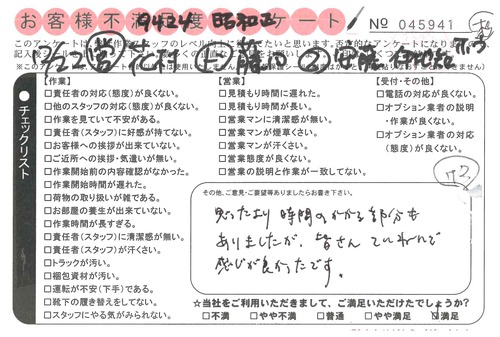 お客様不満度アンケート!
9424 昭和区
№ 045941
チェックリスト
【作業】
□責任者の対応(態度)が良くない。
□他のスタッフの対応(態度)が良くない。
□作業を見ていて不安がある。
□責任者(スタッフ)に好感が持てない。
□お客様への挨拶が出来ていない。
□ご近所への挨拶・気遣いが無い。
□作業開始前の内容確認がなかった。
□作業開始時間が遅れた。
□荷物の取り扱いが雑である。
□お部屋の養生が出来ていない。
□作業時間が長すぎる。
□責任者(スタッフ)に清潔感が無い。
□責任者(スタッフ)が汗くさい。
□トラックが汚い。
□梱包資材が汚い。
□運転が不安(下手)である。
□靴下の履き替えをしてない。
□スタッフにやる気がみられない。
【営業】
□見積もり時間に遅れた。
□見積もり時間が長い。
□営業マンに清潔感が無い。
□営業マンが煙草くさい。
□営業マンが汗くさい。
□営業態度が良くない。
□営業の説明と作業が一致してない。
【受付・その他】
□電話の対応が良くない。
□オプション業者の説明・作業が良くない。
□オプション業者の対応(態度)が良くない。
72
その他、ご意見・ご要望等ありましたらお書き下さい。
思ったより時間のかかる部分も
ありましたが、皆さんていねいで
感じが良かったです。
☆当社をご利用いただきまして、ご満足いただけたでしょうか?
□不満 □やや不満 □普通 □やや満足 ☑満足